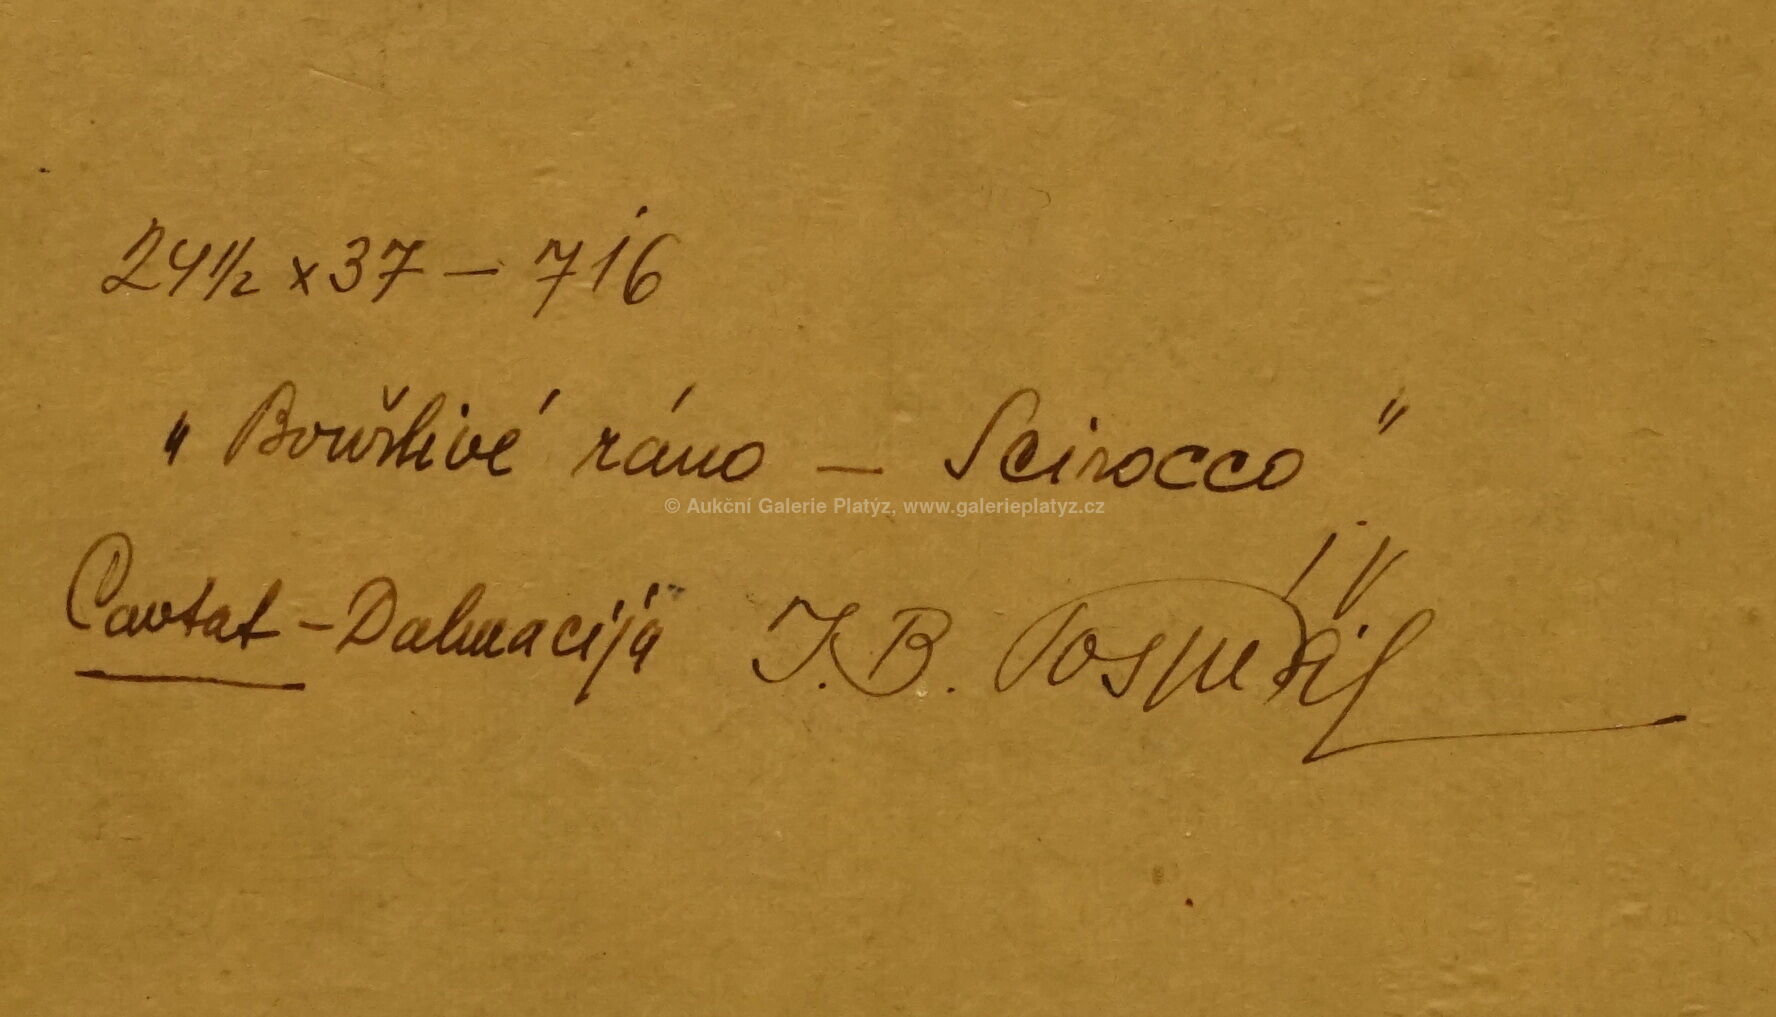 24 1/2 x 37 – 716
"Bouřlivé ráno – Scirocco"
© Aukční Galerie Platýz, www.galerieplatyz.cz
Cavtat – Dalmacija J.B. Pospíšil